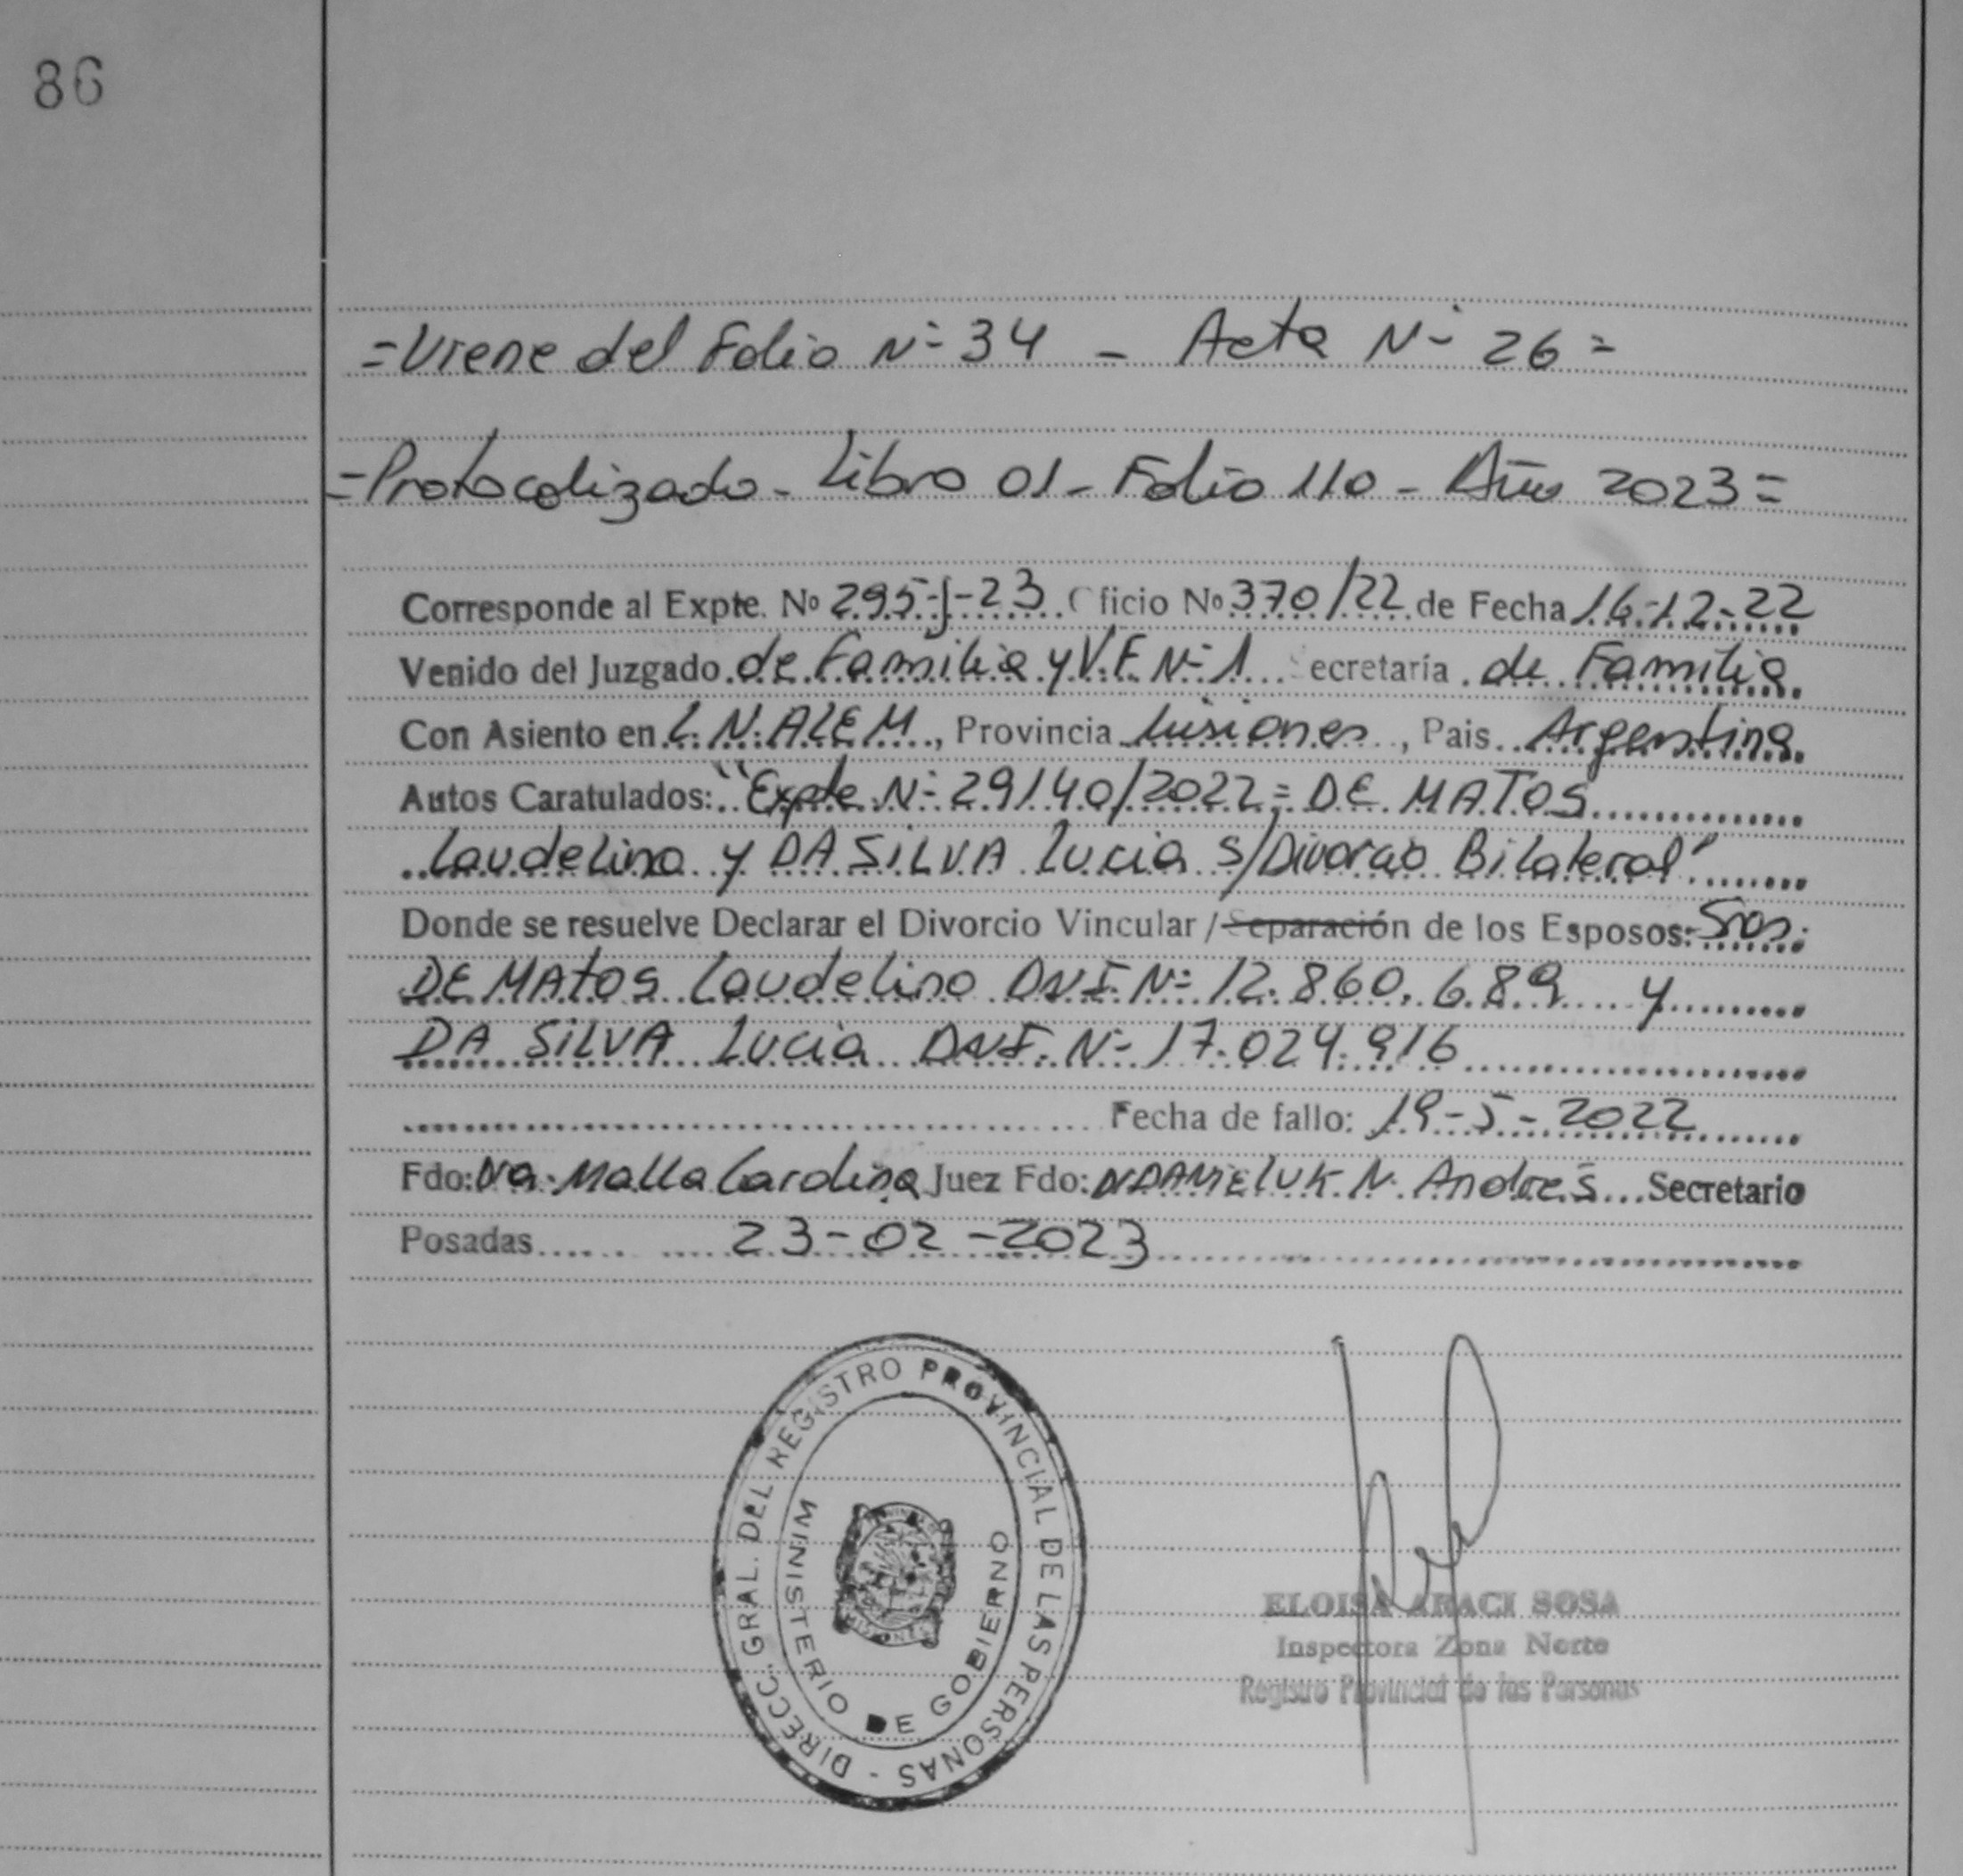 86
=Viene del Folio Nº 34 - Acta Nº 26=
=Protocolizado - Libro 01 - Folio 110 - Año 2023=
Corresponde al Expte. Nº 295-J-23 Oficio Nº 370/22 de Fecha 16-12-22
Venido del Juzgado de Familia y V.F. Nº 1 Secretaría de Familia
Con Asiento en L.N. ALEM, Provincia Misiones, Pais Argentina
Autos Caratulados: "Expte Nº 29140/2022= DE MATOS
Laudelino y DA SILVA Lucia S/Divorcio Bilateral"
Donde se resuelve Declarar el Divorcio Vincular / Separación de los Esposos: Sres.
DE MATOS Laudelino DNI. Nº 12.860.689 y
DA SILVA Lucia DNI. Nº 17.024.916
Fecha de fallo: 19-5-2022
Fdo: Malla Carolina Juez Fdo: N. Andrés Secretario
Posadas 23-02-2023
DIRECC. GRAL. DEL REGISTRO PROVINCIAL DE LAS PERSONAS -
MINISTERIO DE GOBIERNO
ELOISA ARACI SOSA
Inspectora Zona Norte
Registro Provincial de las Personas